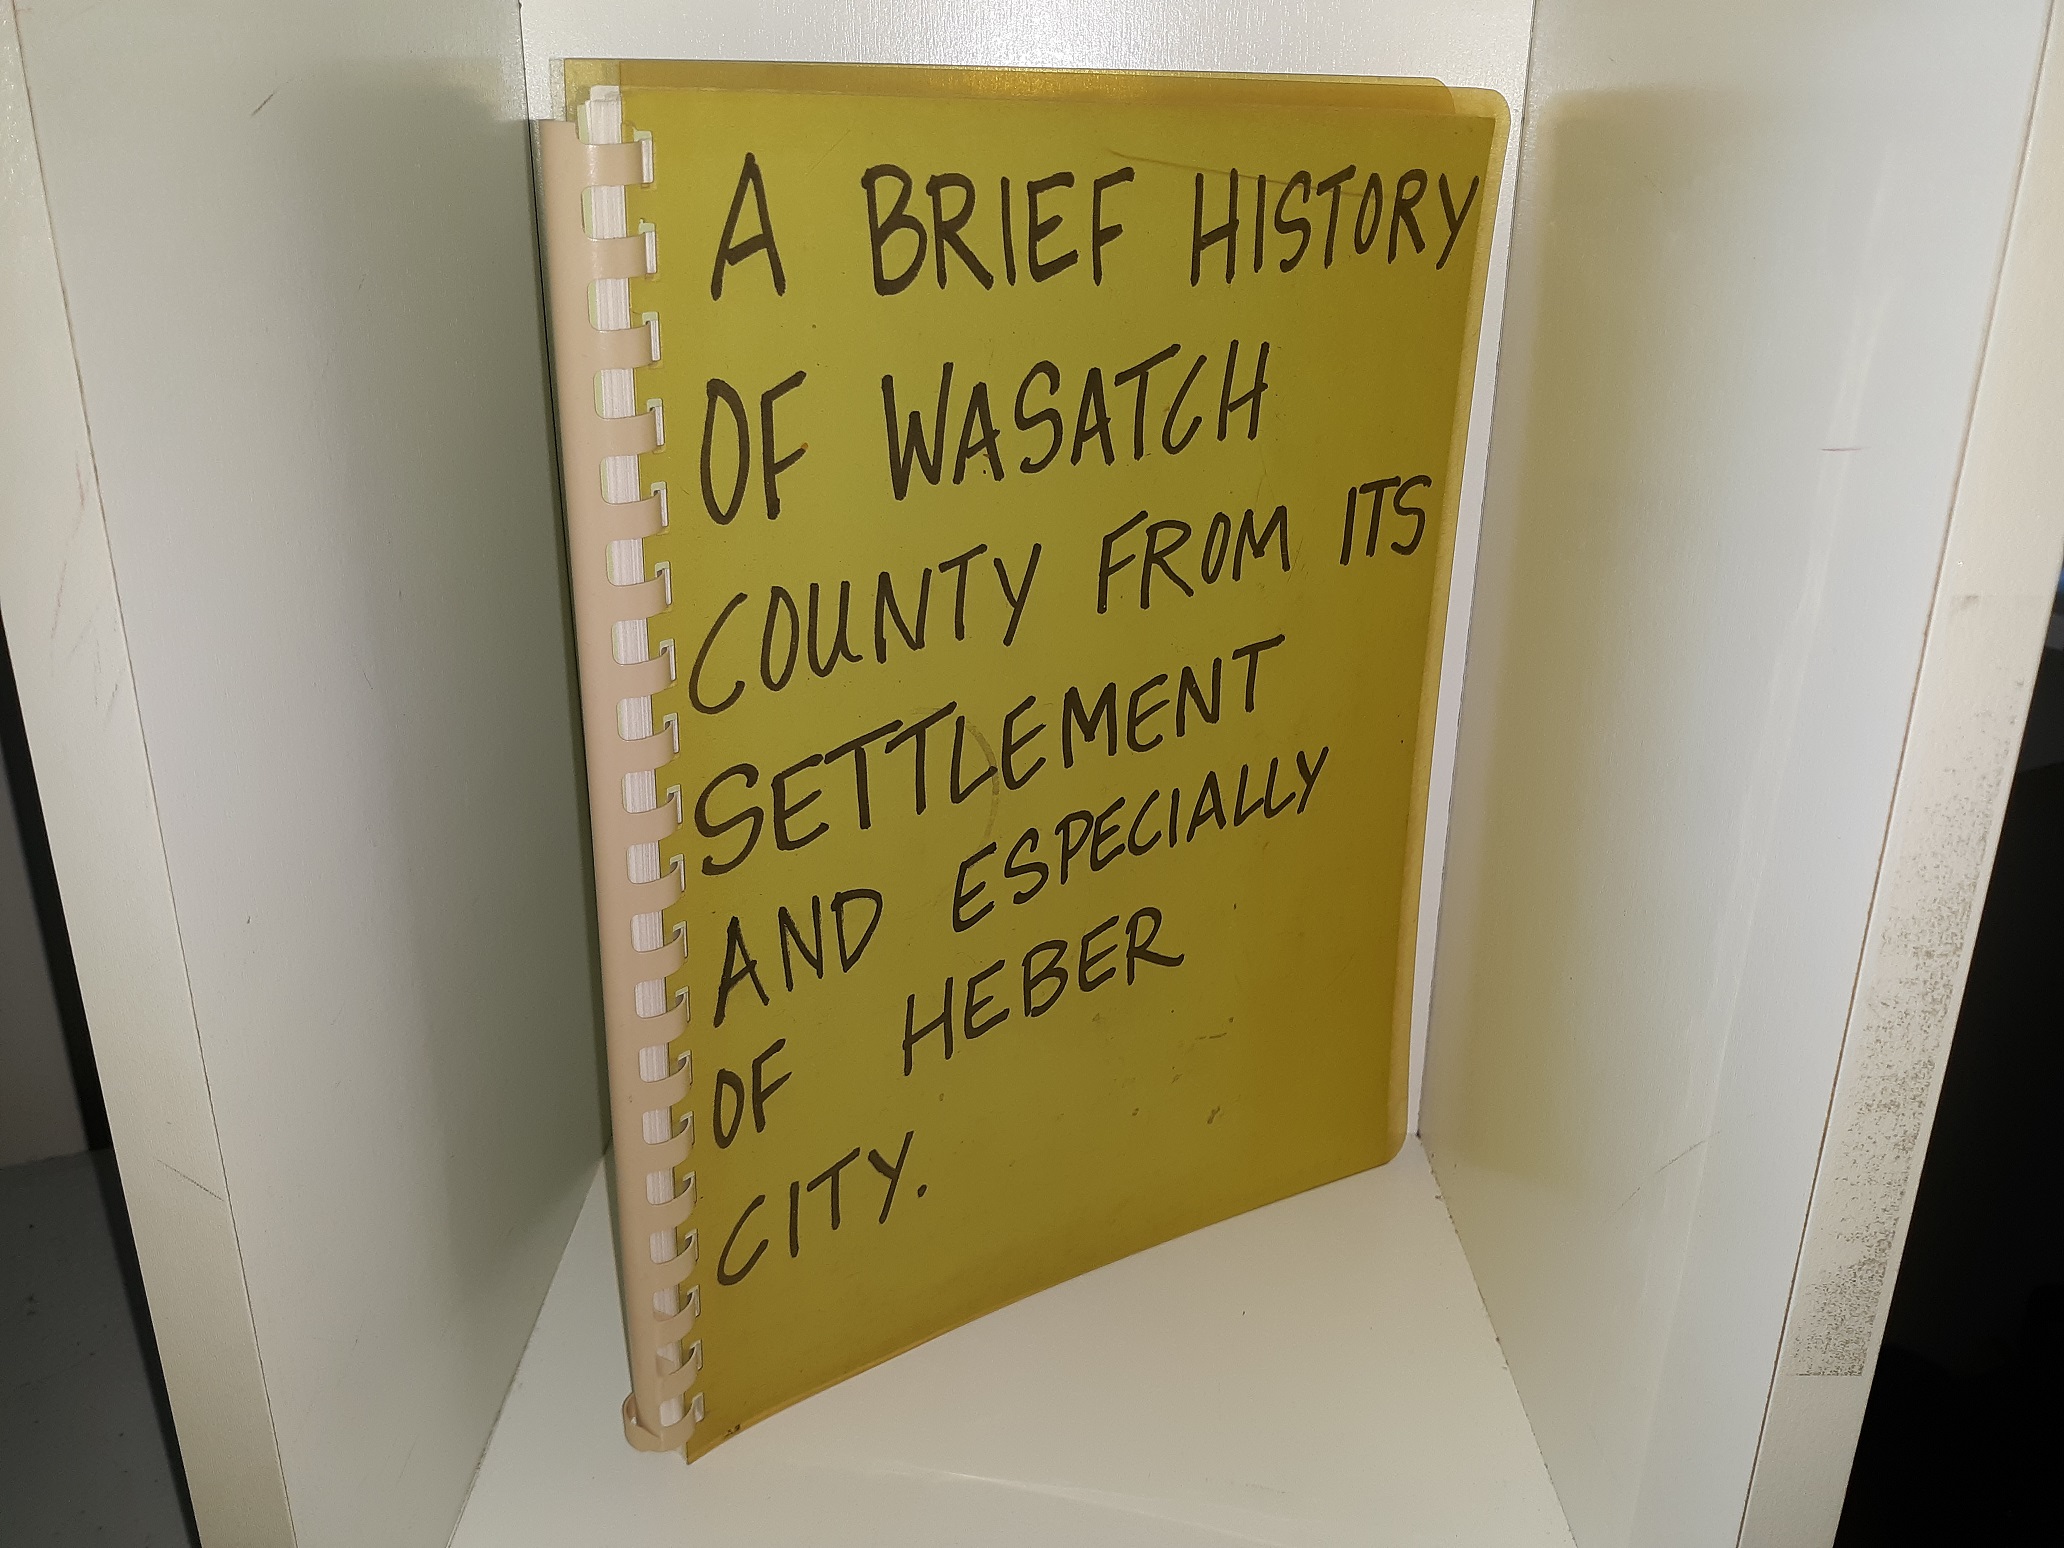 A BRIEF HISTORY
OF WASATCH
COUNTY FROM ITS
SETTLEMENT
AND ESPECIALLY
OF HEBER
CITY.